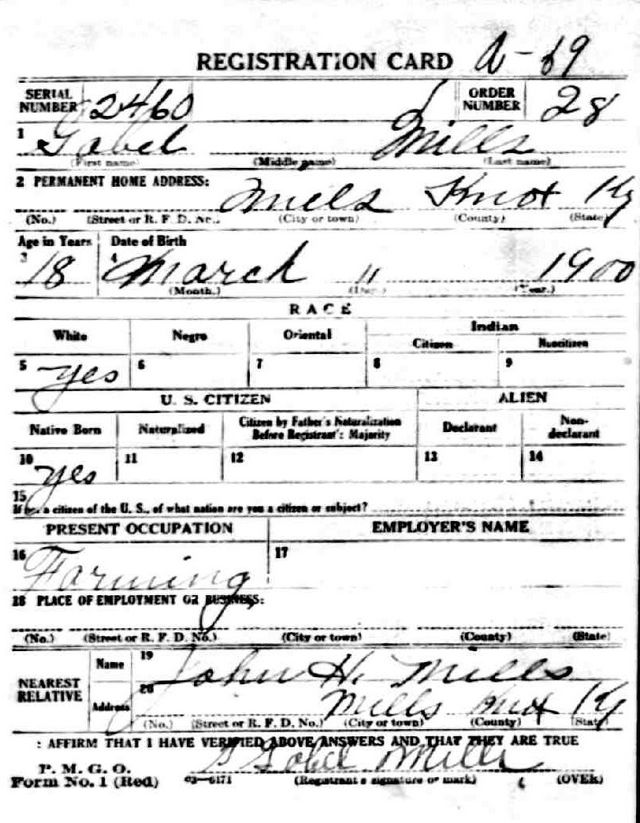 REGISTRATION CARD A-69
SERIAL NUMBER 2460 ORDER NUMBER 28
1 Gobel Mills
(First name) (Middle name) (Last name)
2 PERMANENT HOME ADDRESS: Mills Knot Ky
(No.) (Street or R. F. D. No.) (City or town) (County) (State)
Age in Years Date of Birth
3 18 4 March " 1900
(Month.) (Day.) (Year.)
RACE
White Negro Oriental Indian
Citizen Noncitizen
5 yes 6 7 8 9
U. S. CITIZEN ALIEN
Native Born Naturalized Citizen by Father's Naturalization Before Registrant's Majority Declarant Non-declarant
10 yes 11 12 13 14
15
If not a citizen of the U. S., of what nation are you a citizen or subject?
PRESENT OCCUPATION EMPLOYER'S NAME
16 Farming 17
18 PLACE OF EMPLOYMENT OR BUSINESS:
(No.) (Street or R. F. D. No.) (City or town) (County) (State)
NEAREST RELATIVE Name 19 John H. Mills
Address 20 Mills Knot Ky
(No.) (Street or R. F. D. No.) (City or town) (County) (State)
I AFFIRM THAT I HAVE VERIFIED ABOVE ANSWERS AND THAT THEY ARE TRUE
P. M. G. O.
Form No. 1 (Red) 03-6171 Gobel Mills
(Registrant's signature or mark) (OVER)